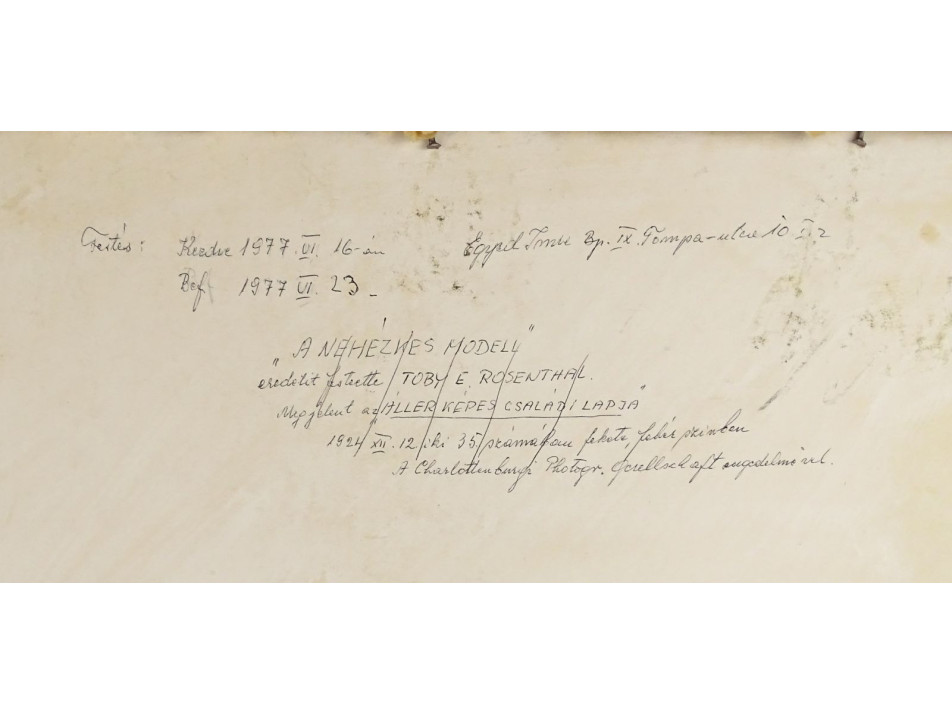 Festés: Kezdve 1977. VI. 16-án Egyed Imre Bp. IX. Tompa-utca 10 I. 2
Bef. 1977 VI. 23_
„A NEHÉZKES MODELL"
eredetit festette TOBY E. ROSENTHAL.
Megjelent az ÁLLER KÉPES CSALÁDI LAPJA"
1924 XII. 12. iki 35 számában fekete, fehér szinben
A Charlottenburgi Photogr. Gesellschaft engedelmével.